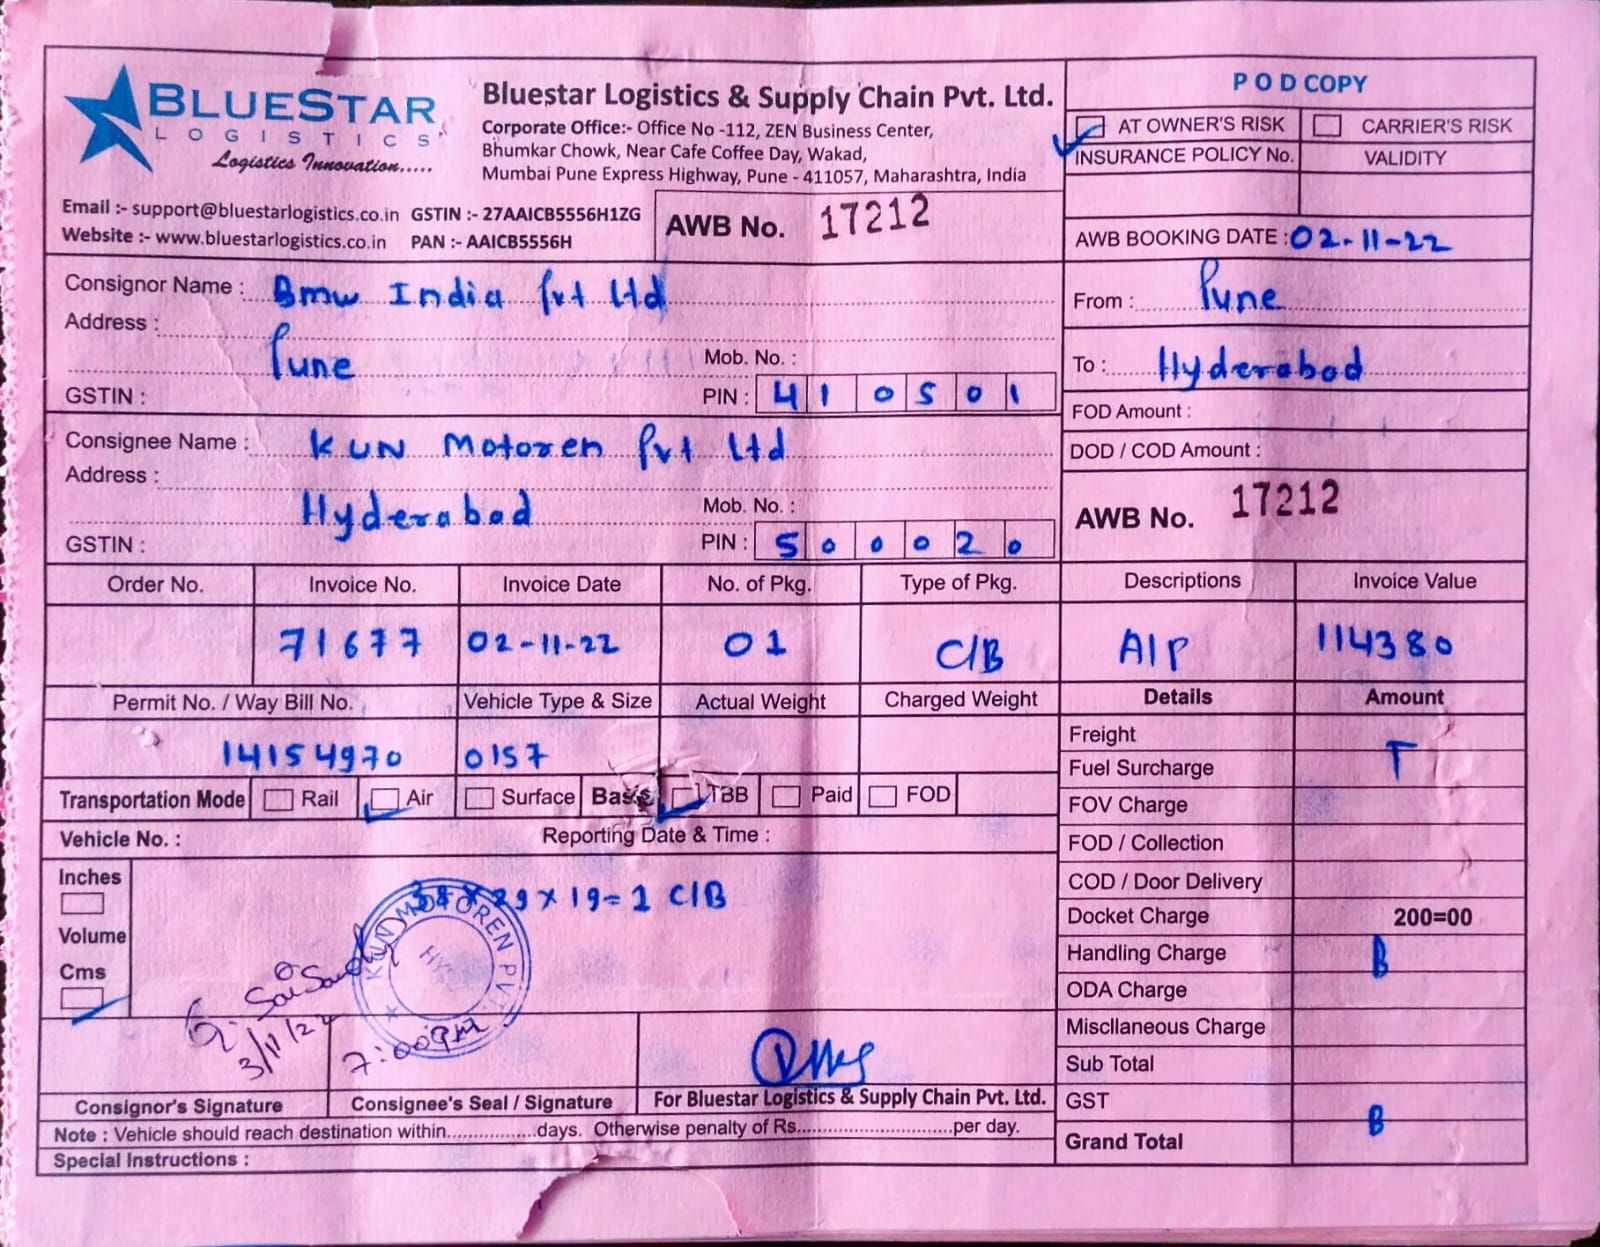 BLUESTAR
LOGISTICS
Logistics Innovation.....
Bluestar Logistics & Supply Chain Pvt. Ltd.
Corporate Office:- Office No -112, ZEN Business Center,
Bhumkar Chowk, Near Cafe Coffee Day, Wakad,
Mumbai Pune Express Highway, Pune - 411057, Maharashtra, India
Email :- support@bluestarlogistics.co.in GSTIN :- 27AAICB5556H1ZG
Website :- www.bluestarlogistics.co.in PAN :- AAICB5556H
AWB No. 17212
POD COPY
AT OWNER'S RISK CARRIER'S RISK
INSURANCE POLICY No. VALIDITY
AWB BOOKING DATE : 02-11-22
Consignor Name : Bmw India Pvt Ltd
Address :
Pune Mob. No. :
GSTIN : PIN : 410501
From : Pune
To : Hyderabad
FOD Amount :
DOD / COD Amount :
Consignee Name : KUN Motoren Pvt Ltd
Address :
Hyderabad Mob. No. :
GSTIN : PIN : 500020
AWB No. 17212
Order No. Invoice No. Invoice Date No. of Pkg. Type of Pkg. Descriptions Invoice Value
71677 02-11-22 01 C/B A/P 114380
Permit No. / Way Bill No. Vehicle Type & Size Actual Weight Charged Weight Details Amount
14154970 0157
Transportation Mode Rail Air Surface Basis TBB Paid FOD
Vehicle No. : Reporting Date & Time :
Inches
Volume
Cms
29 x 19 = 1 C/B
KUN MOTOREN PVT
3/11/22
7:00PM
Consignor's Signature Consignee's Seal / Signature For Bluestar Logistics & Supply Chain Pvt. Ltd.
Note : Vehicle should reach destination within.................days. Otherwise penalty of Rs............................per day.
Special Instructions :
Freight
T
Fuel Surcharge
FOV Charge
FOD / Collection
COD / Door Delivery
Docket Charge 200=00
Handling Charge B
ODA Charge
Miscllaneous Charge
Sub Total
GST
B
Grand Total